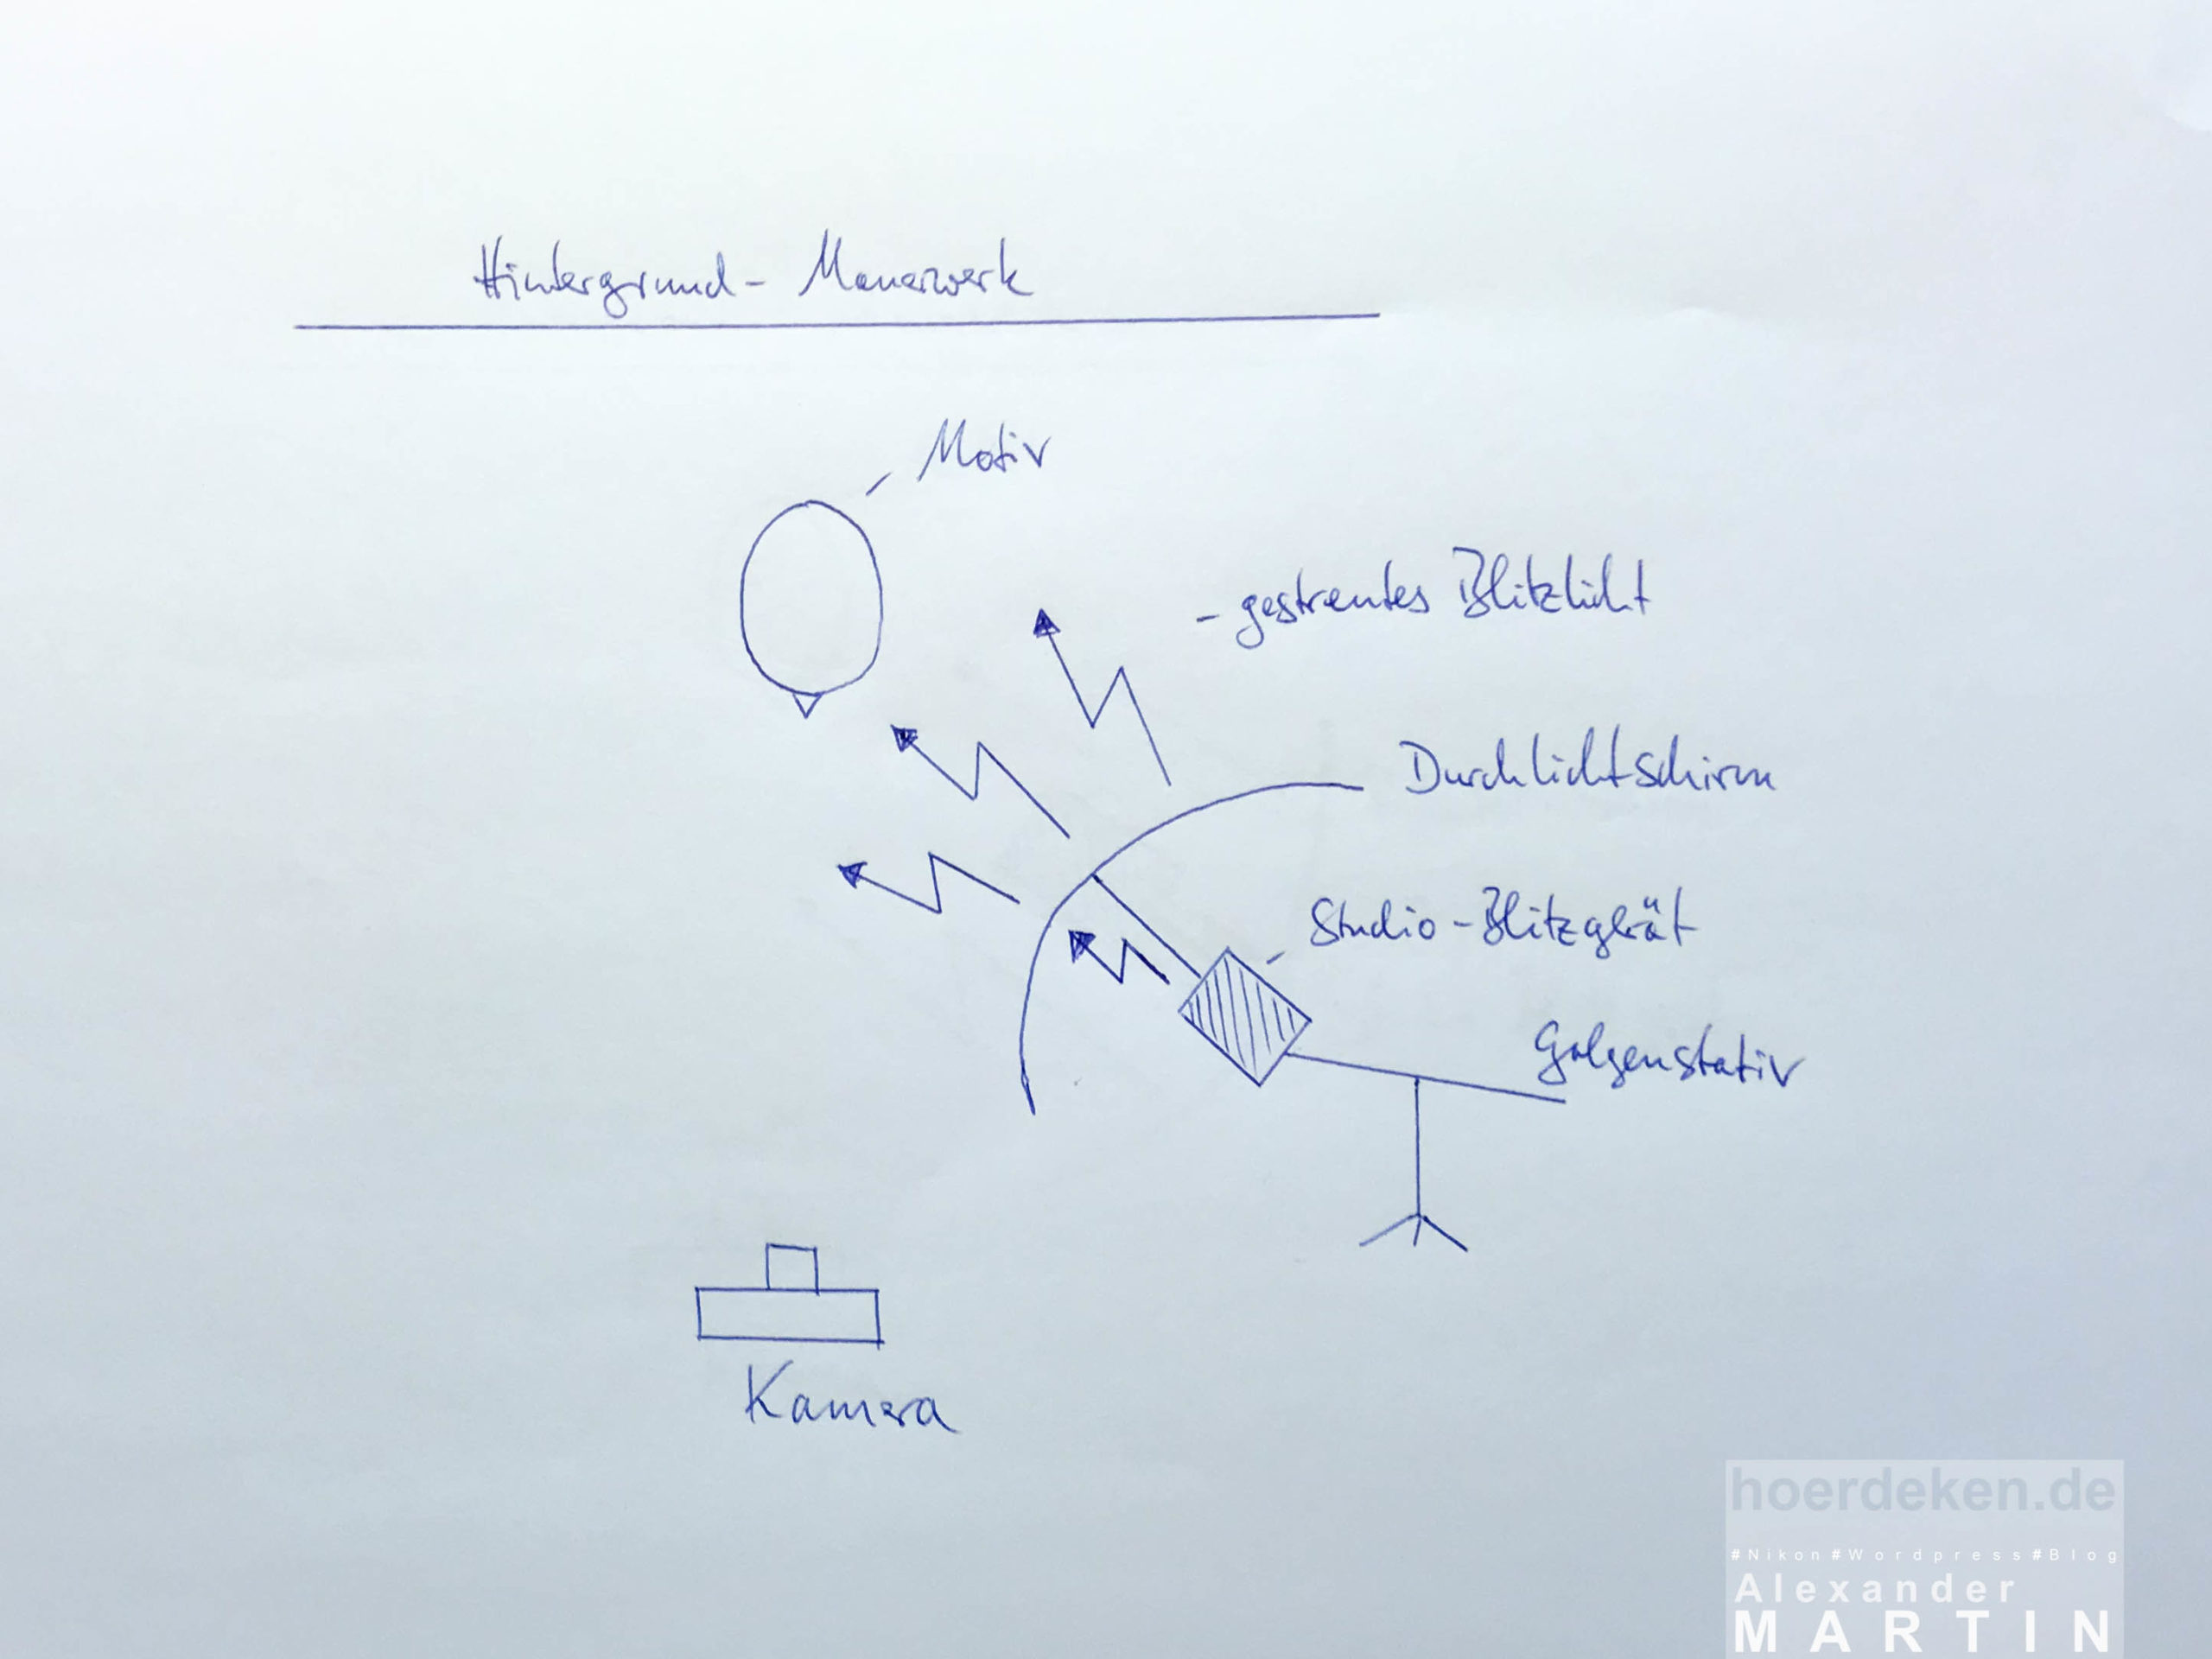 Hintergrund - Mauerwerk
Motiv
- gestreutes Blitzlicht
Durchlichtschirm
Studio - Blitzgerät
Galgenstativ
Kamera
hoerdeken.de
#Nikon#Wordpress#Blog
Alexander
MARTIN